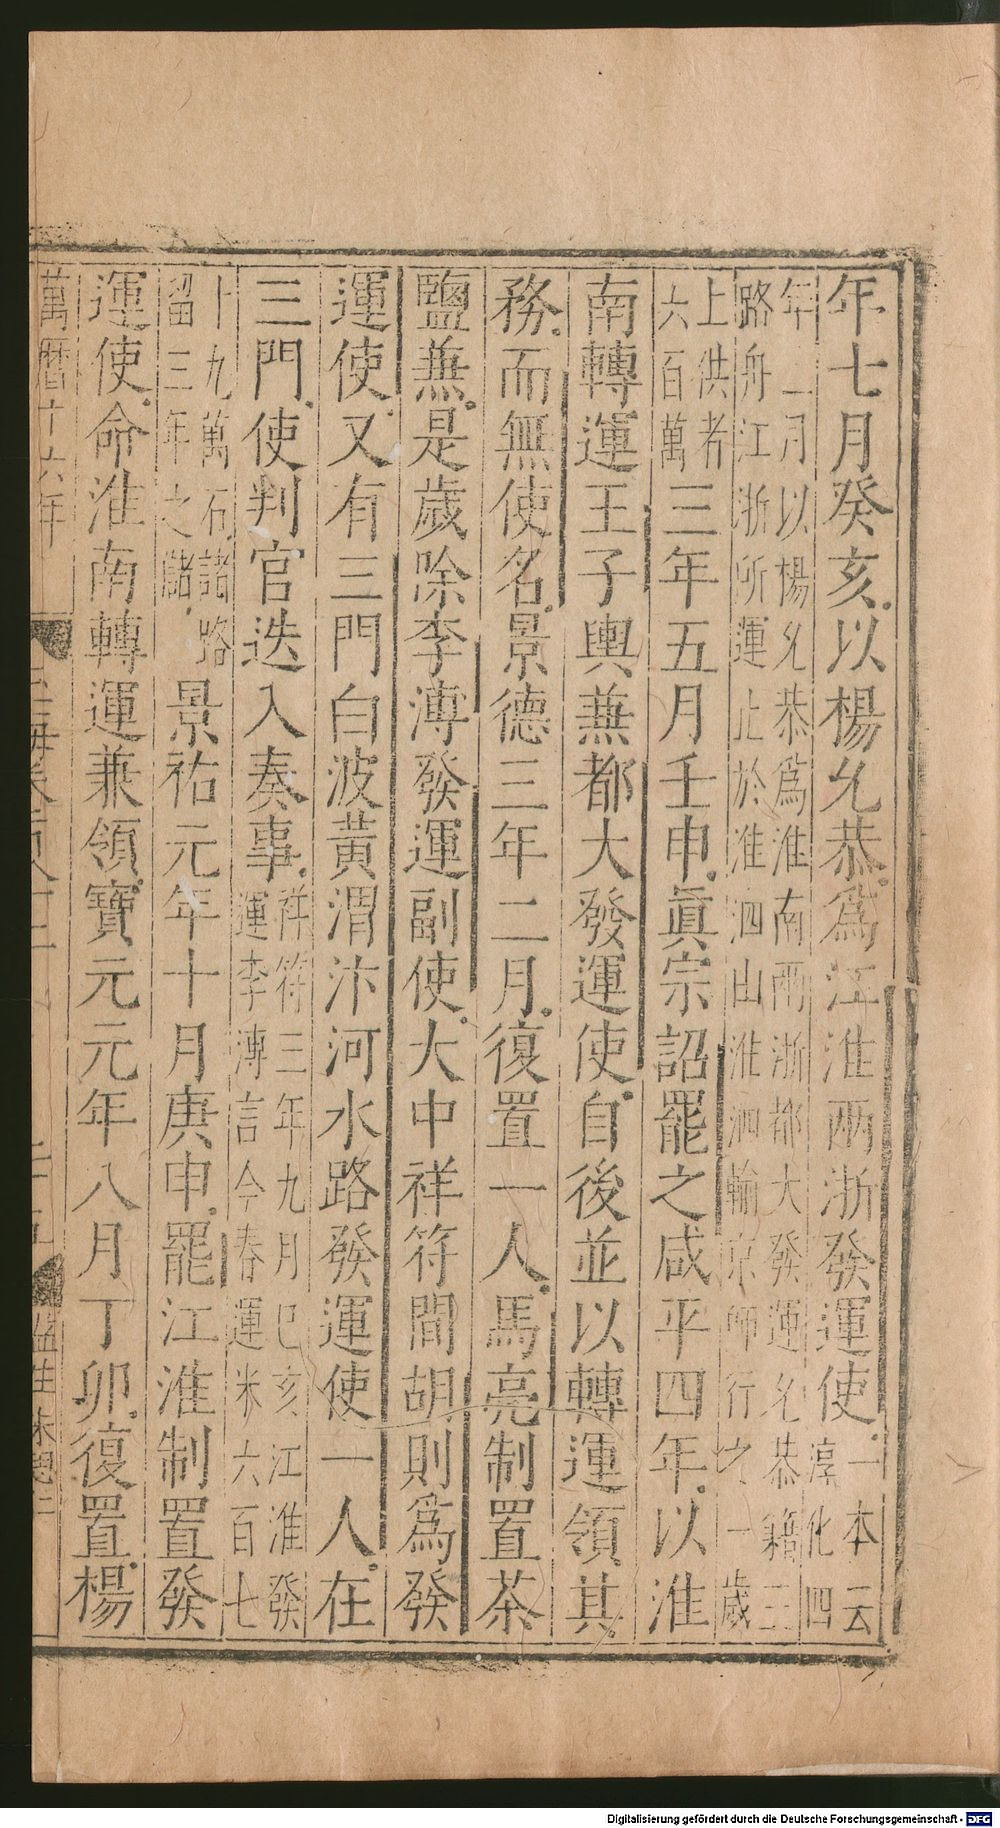 年七月癸亥以楊允恭爲江淮兩浙發運使一本云淳化四
年二月以楊允恭爲淮南兩浙都大發運允恭籍三
路舟江浙所運止於淮泗由淮泗輸京師行之一歲
上供者六百萬三年五月壬申眞宗詔罷之咸平四年以淮
南轉運王子輿兼都大發運使自後並以轉運領其
務而無使名景德三年二月復置一人馬亮制置茶
鹽兼是歲除李溥發運副使大中祥符間胡則爲發
運使又有三門白波黃渭汴河水路發運使一人在
三門使判官迭入奏事祥符三年九月己亥江淮發運李溥言今春運米六百七
十九萬石諸路留三年之儲景祐元年十月庚申罷江淮制置發
運使命淮南轉運兼領寶元元年八月丁卯復置楊
萬曆十六年